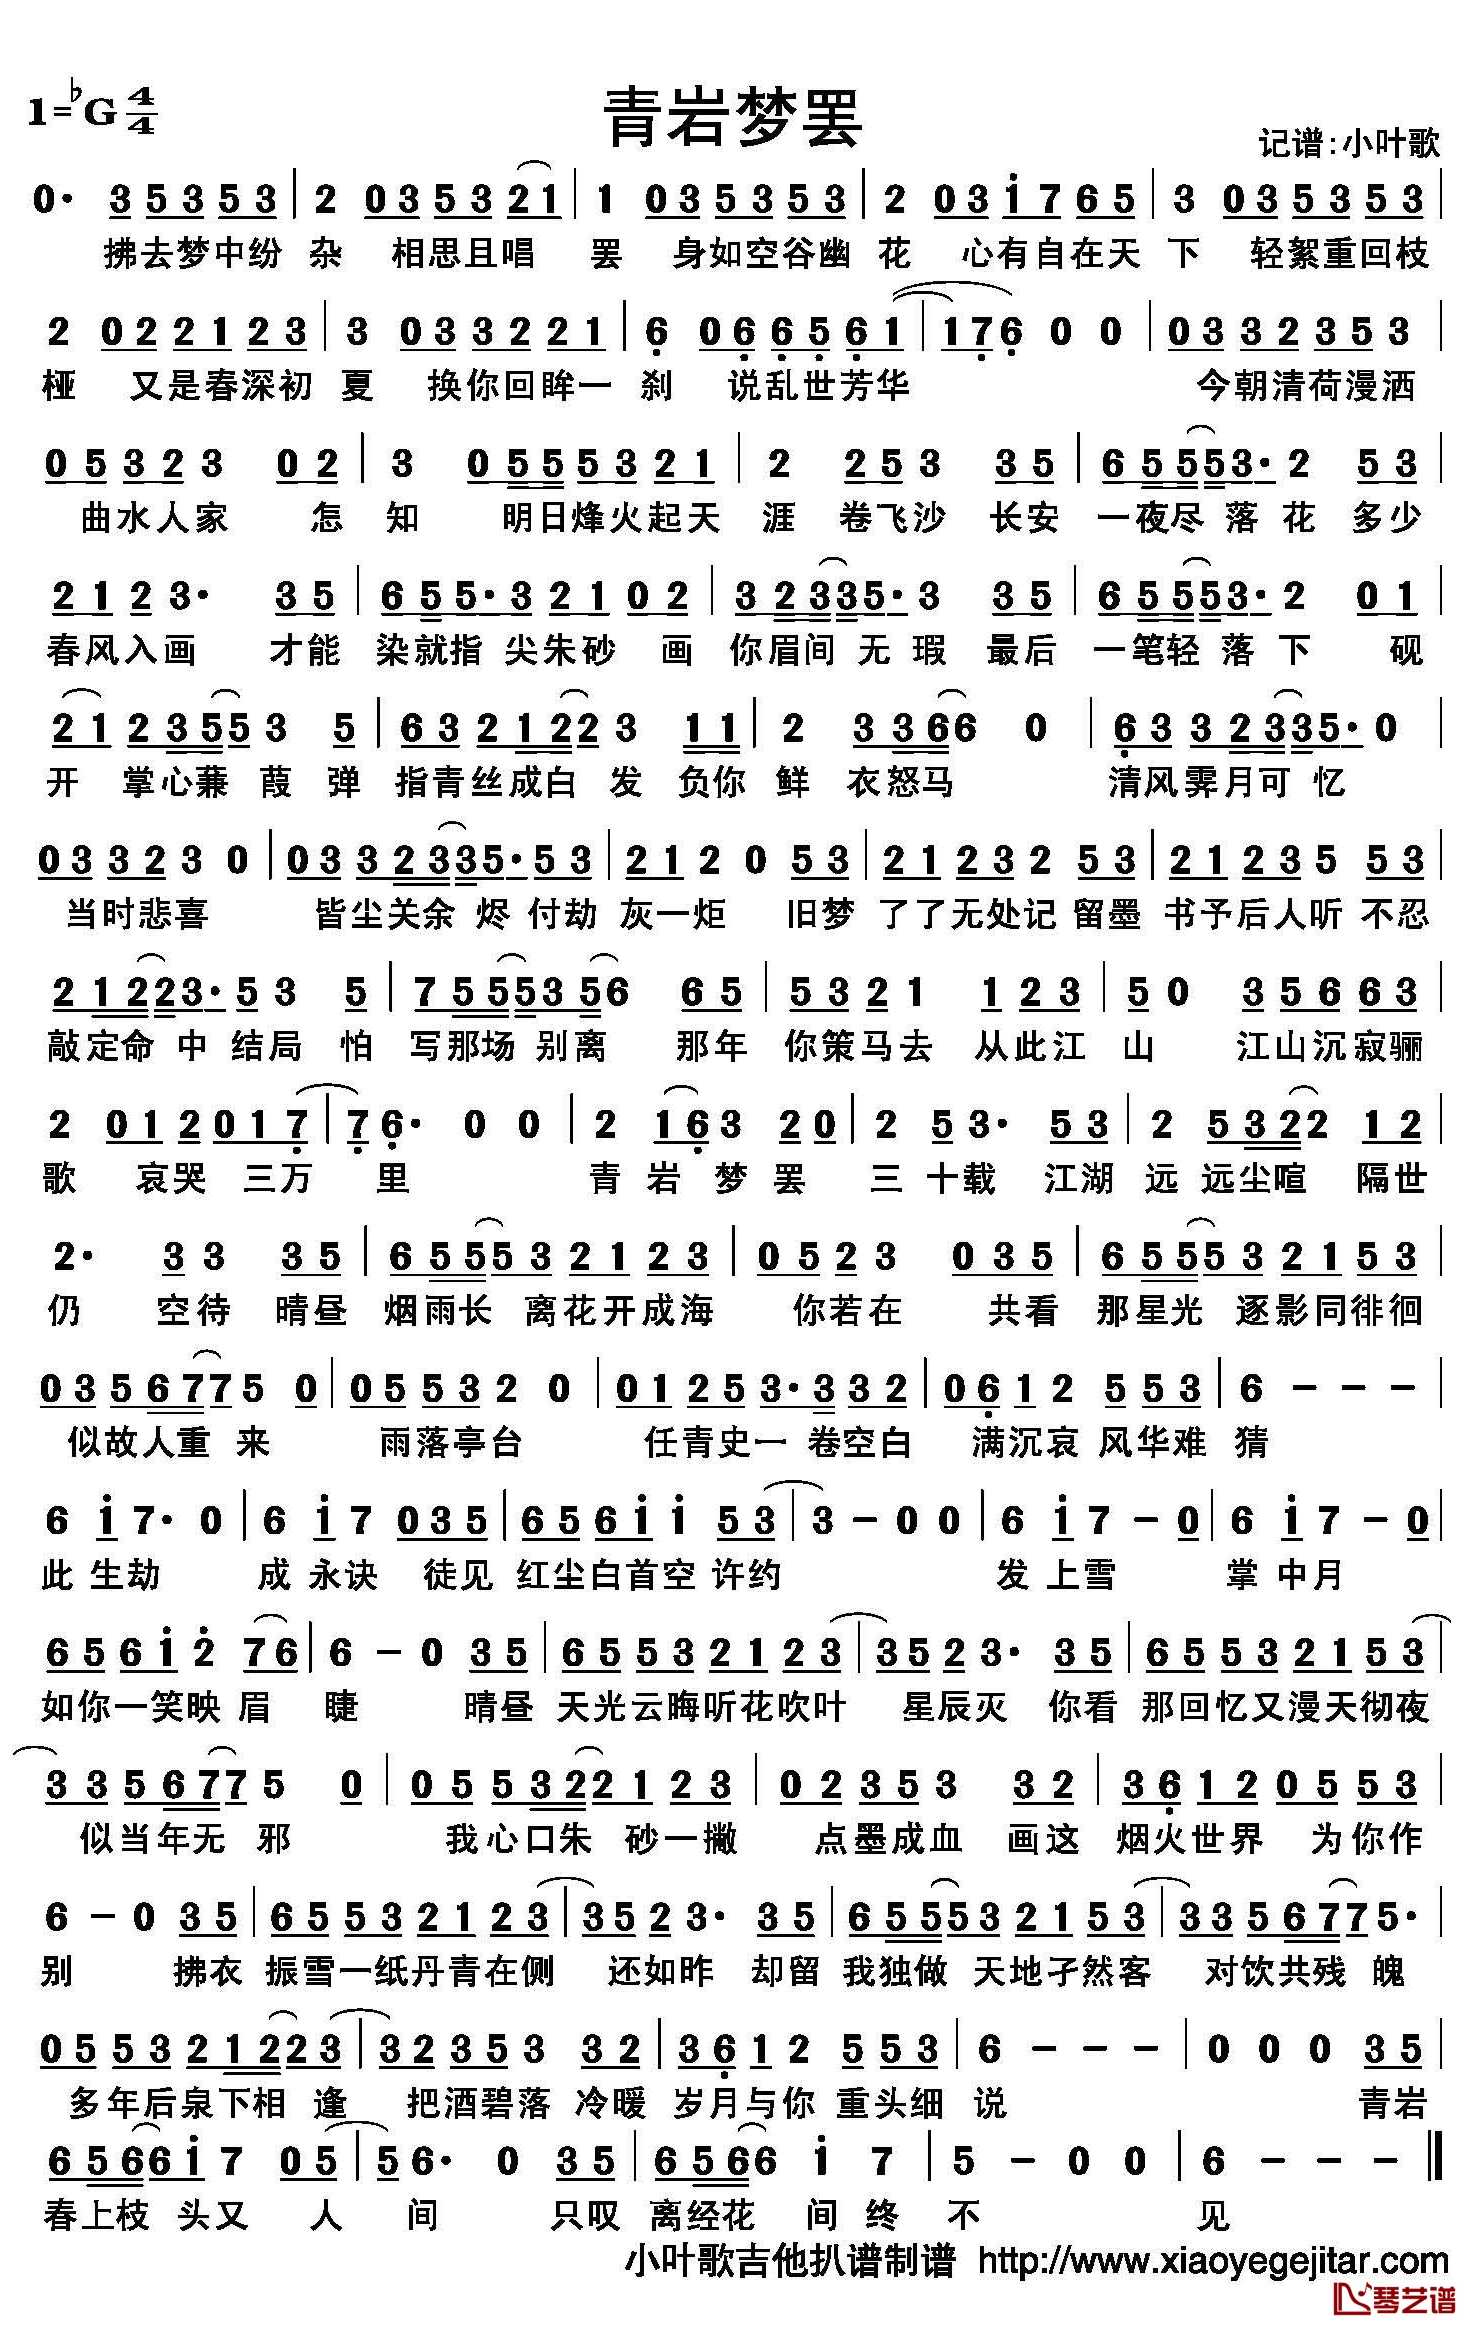 1=♭G 4/4
青岩梦罢
记谱:小叶歌
0· 3 5 3 5 3 | 2 0 3 5 3 2 1 | 1 0 3 5 3 5 3 | 2 0 3 i 7 6 5 | 3 0 3 5 3 5 3 |
拂去梦中纷 杂 相思且唱 罢 身如空谷幽 花 心有自在天 下 轻絮重回枝
2 0 2 2 1 2 3 | 3 0 3 3 2 2 1 | 6 0 6 6 5 6 1 | 1 7 6 0 0 | 0 3 3 2 3 5 3 |
桠 又是春深初 夏 换你回眸一 刹 说乱世芳华 今朝清荷漫洒
0 5 3 2 3 0 2 | 3 0 5 5 5 3 2 1 | 2 2 5 3 3 5 | 6 5 5 5 3· 2 5 3 |
曲水人家 怎 知 明日烽火起天 涯 卷飞沙 长安 一夜尽 落 花 多少
2 1 2 3· 3 5 | 6 5 5· 3 2 1 0 2 | 3 2 3 3 5· 3 3 5 | 6 5 5 5 3· 2 0 1 |
春风入画 才能 染就指 尖朱砂 画 你眉间 无 瑕 最后 一笔轻 落 下 砚
2 1 2 3 5 5 3 5 | 6 3 2 1 2 2 3 1 1 | 2 3 3 6 6 0 | 6 3 3 2 3 3 5· 0 |
开 掌心蒹 葭 弹 指青丝成白 发 负你 鲜 衣怒马 清风霁月可 忆
0 3 3 2 3 0 | 0 3 3 2 3 3 5· 5 3 | 2 1 2 0 5 3 | 2 1 2 3 2 5 3 | 2 1 2 3 5 5 3 |
当时悲喜 皆尘关余 烬 付劫 灰一炬 旧梦 了了无处记 留墨 书予后人听 不忍
2 1 2 2 3· 5 3 5 | 7 5 5 5 3 5 6 6 5 | 5 3 2 1 1 2 3 | 5 0 3 5 6 6 3 |
敲定命 中 结局 怕 写那场 别离 那年 你策马去 从此江 山 江山沉寂骊
2 0 1 2 0 1 7 | 7 6· 0 0 | 2 1 6 3 2 0 | 2 5 3· 5 3 | 2 5 3 2 2 1 2 |
歌 哀哭 三万 里 青 岩 梦 罢 三 十载 江湖 远 远尘喧 隔世
2· 3 3 3 5 | 6 5 5 5 3 2 1 2 3 | 0 5 2 3 0 3 5 | 6 5 5 5 3 2 1 5 3 |
仍 空待 晴昼 烟雨长 离花开成海 你若在 共看 那星光 逐影同徘徊
0 3 5 6 7 7 5 0 | 0 5 5 3 2 0 | 0 1 2 5 3· 3 3 2 | 0 6 1 2 5 5 3 | 6 – – – |
似故人重 来 雨落亭台 任青史一 卷空白 满沉哀 风华难 猜
6 i 7· 0 | 6 i 7 0 3 5 | 6 5 6 i i 5 3 | 3 – 0 0 | 6 i 7 – 0 | 6 i 7 – 0 |
此 生劫 成 永诀 徒见 红尘白首空 许约 发 上雪 掌 中月
6 5 6 i 2 7 6 | 6 – 0 3 5 | 6 5 5 3 2 1 2 3 | 3 5 2 3· 3 5 | 6 5 5 3 2 1 5 3 |
如你一笑映 眉 睫 晴昼 天光云晦听花吹叶 星辰灭 你看 那回忆又漫天彻夜
3 3 5 6 7 7 5 0 | 0 5 5 3 2 2 1 2 3 | 0 2 3 5 3 3 2 | 3 6 1 2 0 5 5 3 |
似当年无 邪 我心口朱 砂一撇 点墨成血 画这 烟火世界 为你作
6 – 0 3 5 | 6 5 5 3 2 1 2 3 | 3 5 2 3· 3 5 | 6 5 5 5 3 2 1 5 3 | 3 3 5 6 7 7 5· |
别 拂衣 振雪一纸丹青在侧 还如昨 却留 我独做 天地孑然客 对饮共残 魄
0 5 5 3 2 1 2 2 3 | 3 2 3 5 3 3 2 | 3 6 1 2 5 5 3 | 6 – – – | 0 0 0 3 5 |
多年后泉下相 逢 把酒碧落 冷暖 岁月与你 重头细 说 青岩
6 5 6 6 i 7 0 5 | 5 6· 0 3 5 | 6 5 6 6 i 7 | 5 – 0 0 | 6 – – – ‖
春上枝 头又 人 间 只叹 离经花 间 终 不 见
小叶歌吉他扒谱制谱 http://www.xiaoyegejitar.com
琴艺谱